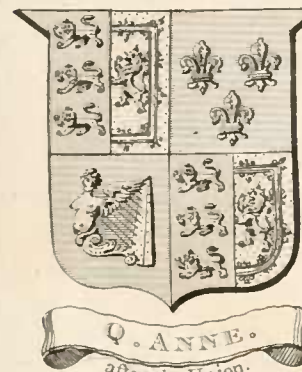 Q. ANNE.
after ye Union.